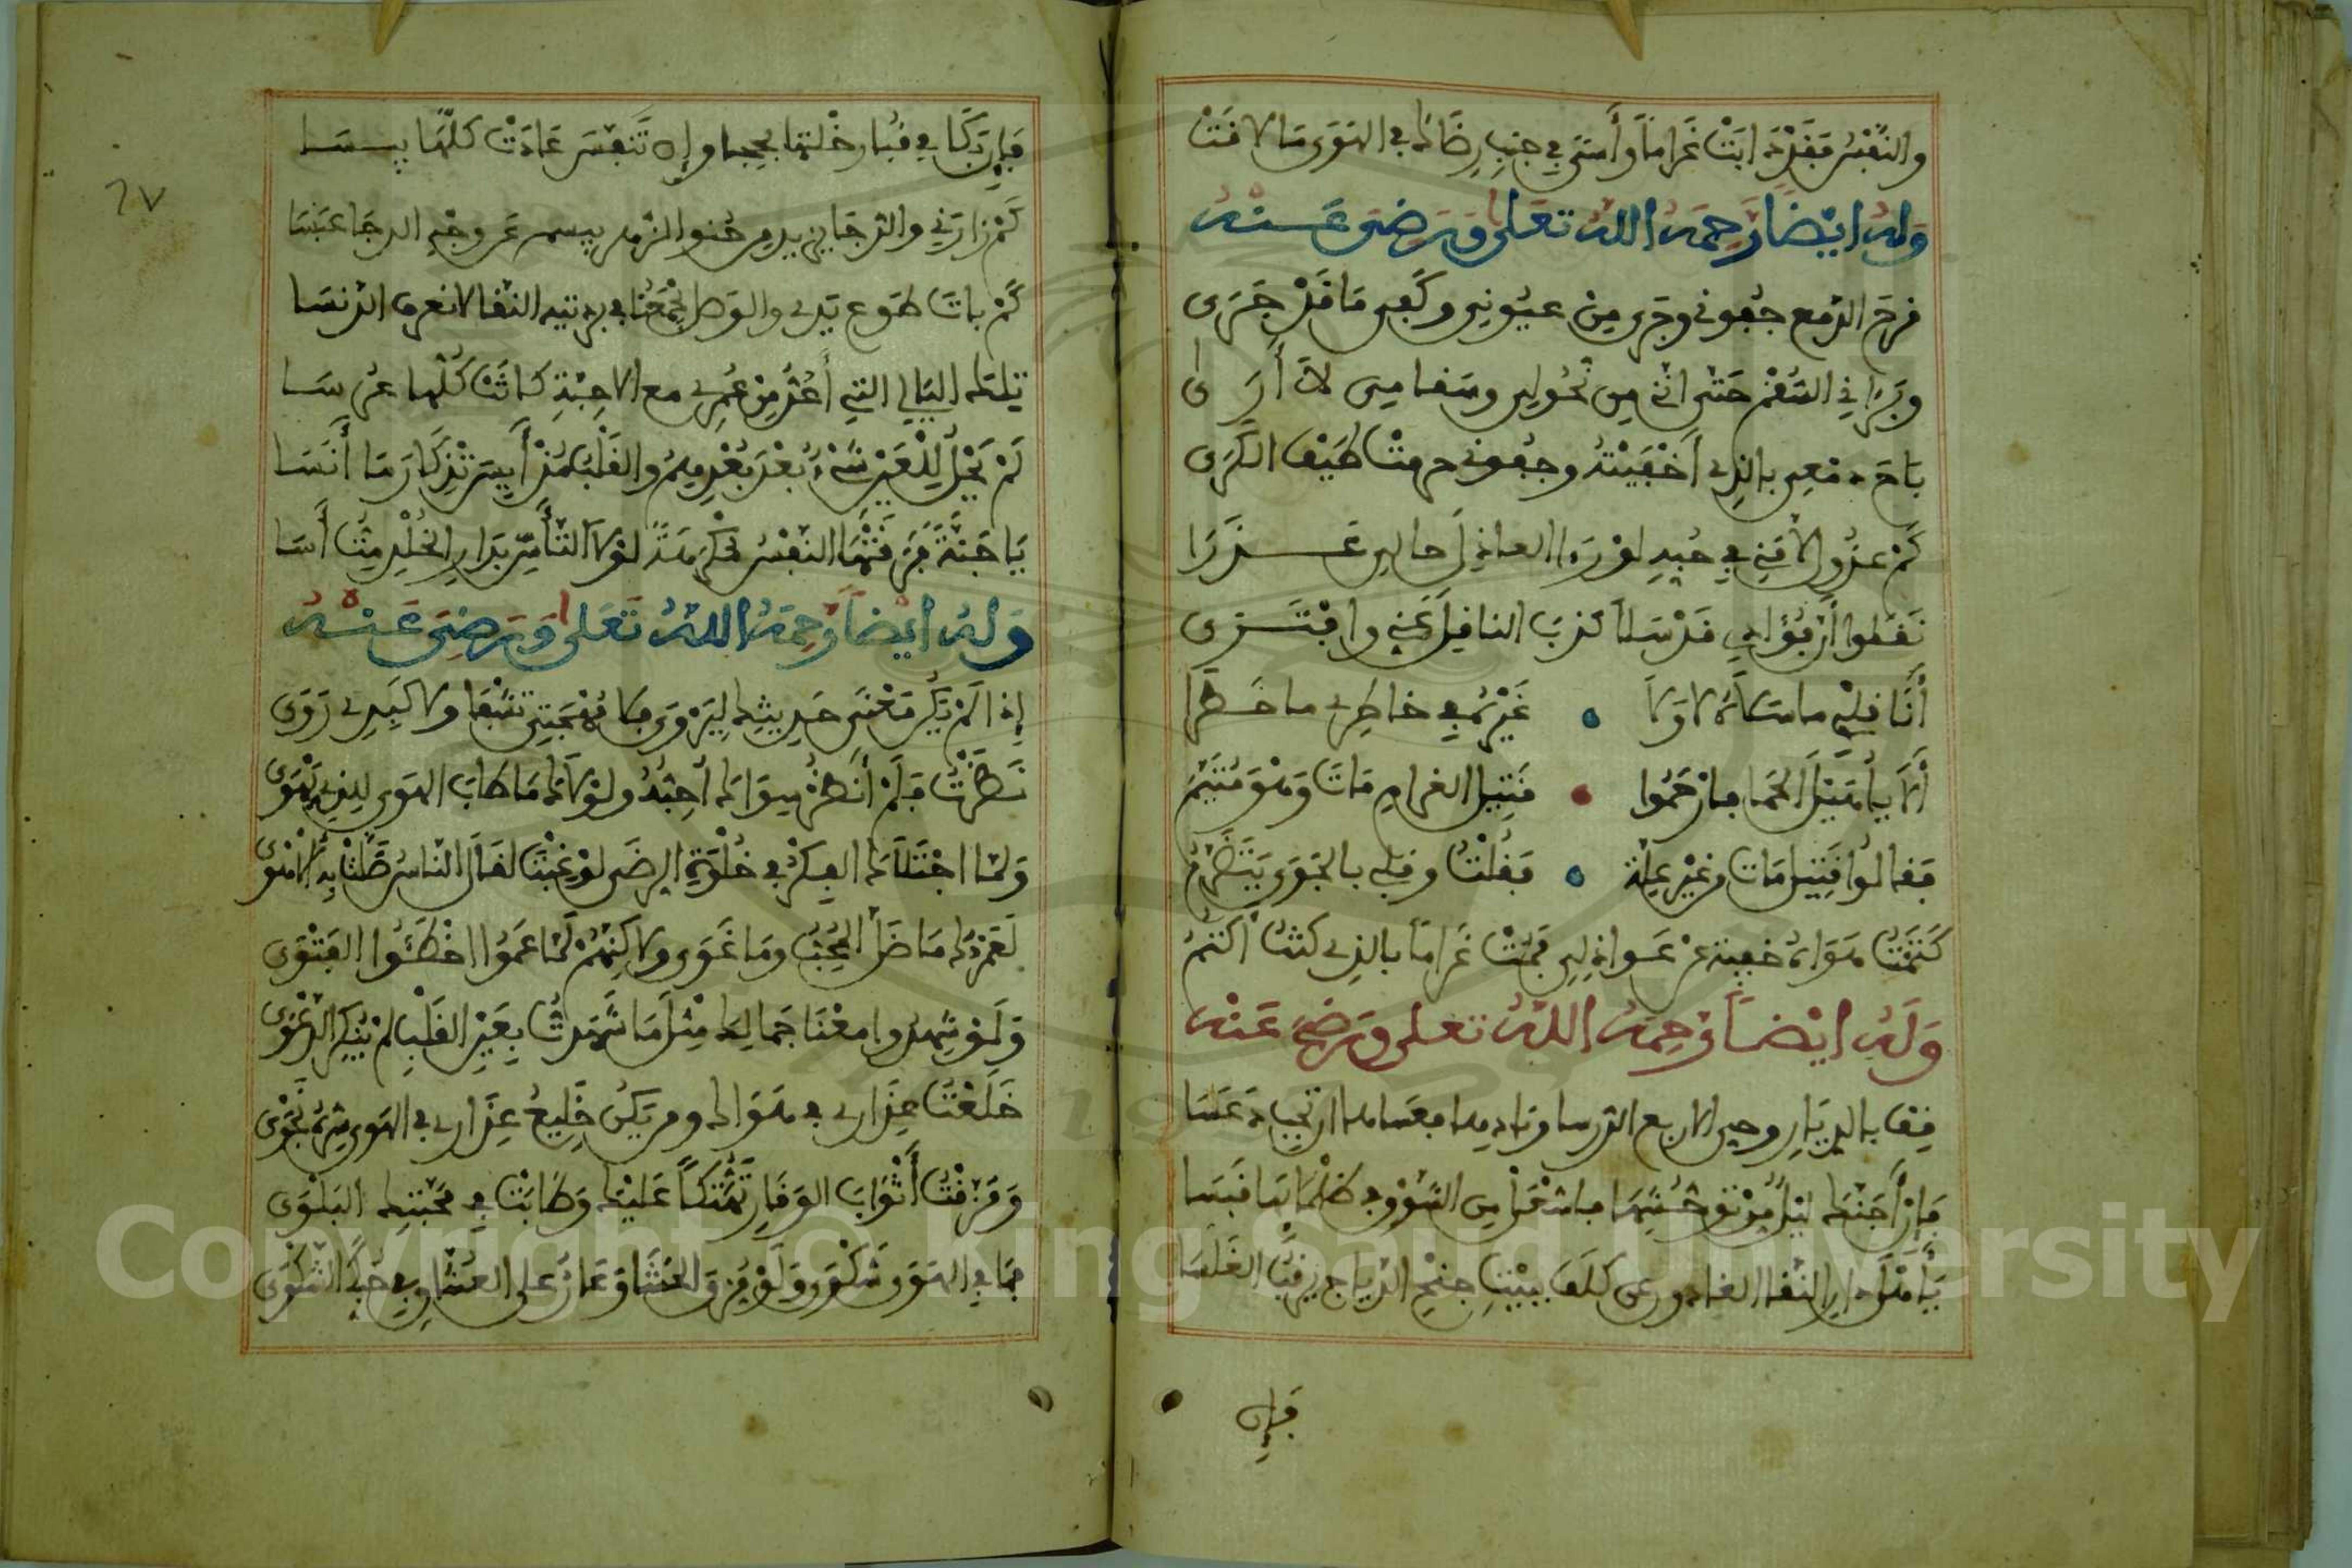 والنفس فقد ذابت غراما وأسى في جنب رضاك في الهوى ما لاقت
وله ايضا رحمه الله تعلى ورضي عنه
قرح الدمع جفوني وجرى من عيوني وكفى ما قد جرى
وبراني السقم حتى انني من نحولي وسقامي لا أرى
باح دمعي بالذي أخفيته وجفوني حرمت طيف الكرى
كم عذول لامني في حبه لو رءا العاذل حالي عذرا
نقلوا أن فؤادي قد سلا كذب الناقل عني وافترى
أنا قلبي ما سلاه لا ولا • غيره في خاطري ما خطرا
ألا يا أهيل الحما فارحموا • قتيل الغرام مات وهو متيم
فقالوا قتيل مات من غير علة • فقلت وقلبي بالجوى يتضرم
كتمت هواه خيفة من عواذلي فمت غراما بالذي كنت أكتم
وله ايضا رحمه الله تعلى ورضي عنه
قفا بالديار وحي الاربع الدرسا وناديها فعساها ان تجيب عسا
فإن أجنك ليل من توحشها فاشعل من الشوق في ظلمائها قبسا
يا هل دار النقا الغادون عن كلف يبيت جنح الدياجي يرقب الغلسا
فإن
٦٧
فإن بكا في قفار خلتها لججا وإن تنفس عادت كلها يبسا
كم زارني والدجا يربد من حنق والزهر يبسم عن وجه الدجا عبسا
كم بات طوع يدي والوصل يجمعنا في بردتيه التقا لا نعرف الدنسا
تلك الليالي التي أعد من عمري مع الاحبة كانت كلها عرسا
لم يحل للعين شيء بعد بعدهم والقلب مذ أيس تذكارها أنسا
يا جنة فرقتها النفس مكرهة لولا التأسي بدار الخلد مت أسا
وله ايضا رحمه الله تعلى ورضي عنه
إذا لم يكن معنى حديثك لي يروى فلا مهجتي تشفا ولا كبدي تروى
نظرت فلم أنظر سواك أحبه ولولاك ما طاب الهوى للذي يهوى
ولما اجتلاك الفكر في خلوة الرضى لو غبت لقال الناس ظلت به الاهوى
لعمرك ما ضل المحب وما غوى ولاكنهم لما عموا اخطئوا الفتوى
ولو شهدوا معنا جمالك مثل ما شهدت بعين القلب لم ينكر الدعوى
خلعت عذاري في هواك ومن يكن خليع عذاري في الهوى سره نجوى
ومزقت أثواب الوقار تهتكا عليك وطابت في محبتك البلوى
فما في الهوى شكوى ولو مزق الحشا وعار على العشاق في حبك الشكوى